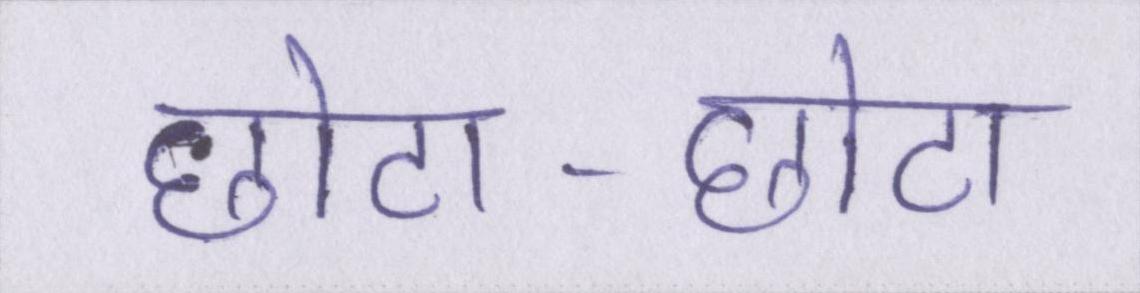 छोटा - छोटा